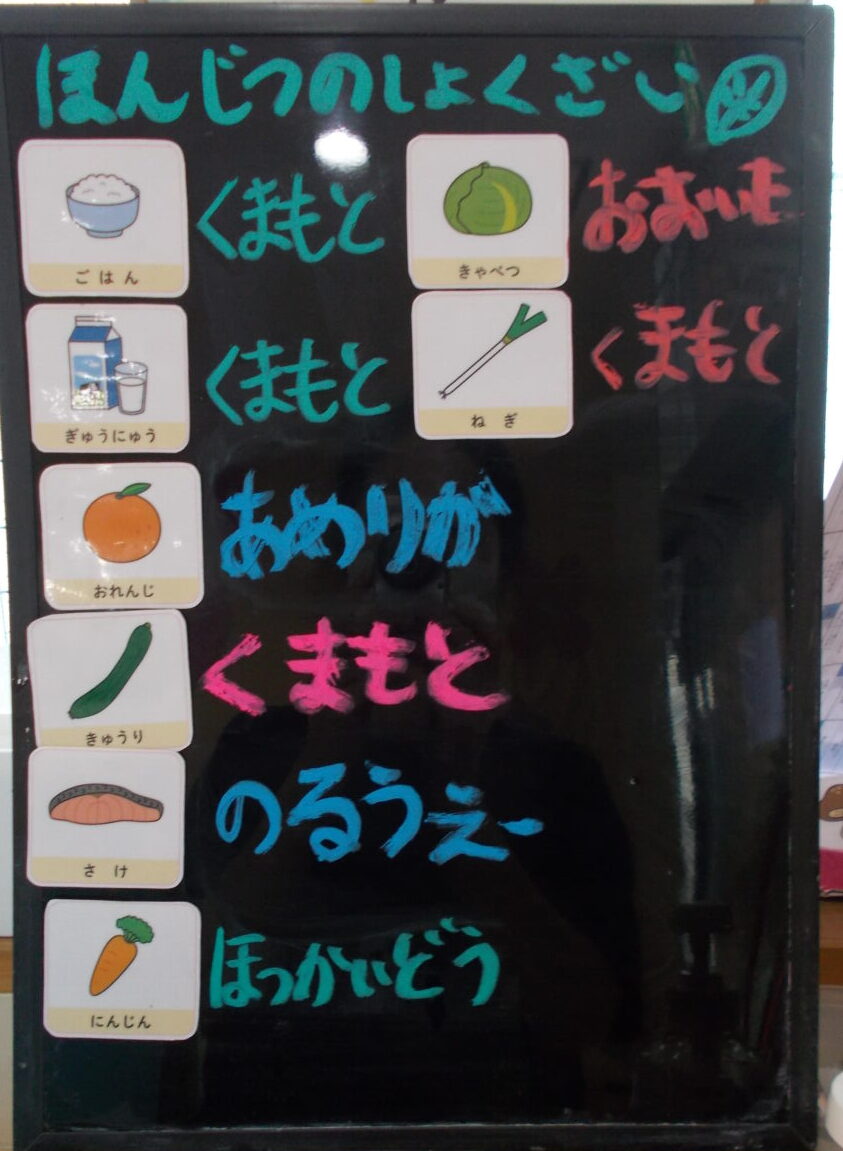 ほんじつのしょくざい
ごはん
くまもと
きゃべつ
おおいた
ぎゅうにゅう
くまもと
ねぎ
くまもと
おれんじ
あめりか
きゅうり
くまもと
さけ
のるうぇー
にんじん
ほっかいどう